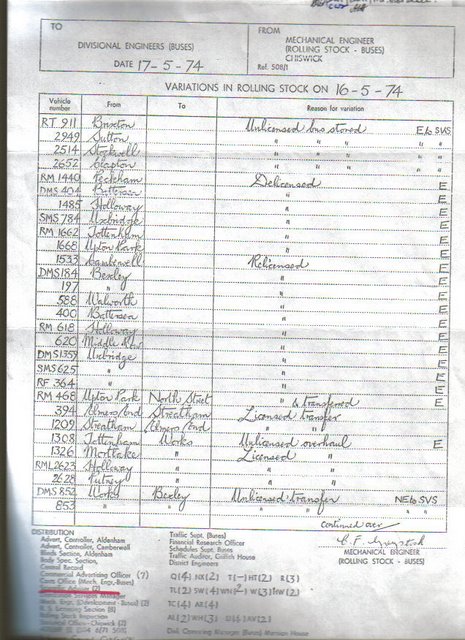 TO
DIVISIONAL ENGINEERS (BUSES)
DATE 17-5-74
FROM
MECHANICAL ENGINEER
(ROLLING STOCK - BUSES)
CHISWICK
Ref. 508/1
VARIATIONS IN ROLLING STOCK ON 16-5-74
Vehicle number From To Reason for variation
RT 911 Brixton Unlicensed bus stored E to SVS
2949 Sutton " " " " "
2514 Stockwell " " " " "
2652 Clapton " " " " "
RM 1440 Peckham Delicensed E
DMS 404 Battersea " E
1485 Holloway " E
SMS 784 Uxbridge " E
RM 1662 Tottenham " E
1668 Upton Park " E
1533 Camberwell Relicensed E
DMS 184 Bexley " E
197 " " E
588 Walworth " E
400 Battersea " E
RM 618 Holloway " E
620 Middle Row " E
DMS 1359 Uxbridge " E
SMS 625 " " E
RF 364 " " E
RM 468 Upton Park North Street " & transferred E
394 Elmers End Streatham Licensed transfer
1209 Streatham Elmers End " "
1308 Tottenham Works Unlicensed overhaul E
1326 Mortlake " Licensed "
RML 2623 Holloway " " "
2628 Putney " " "
DMS 852 Works Bexley Unlicensed transfer NE to SVS
853 " " " " " "
continued over
MECHANICAL ENGINEER
(ROLLING STOCK - BUSES)
DISTRIBUTION
Advert. Controller, Aldenham
Advert. Controller, Camberwell
Blinds Section, Aldenham
Body Spec. Section,
Central Record
Commercial Advertising Officer (7)
Costs Office (Mech. Engr.-Buses)
Mech. Engr. (Development-Buses) (2)
Rolling Stock Inspection
Traffic Supt. (Buses)
Financial Research Officer
Schedules Supt. Buses
Traffic Auditor, Griffith House
District Engineers
Q(4) NX(2) T(-) HT(2) R(3)
TL(2) SW(4) WH(2) W(3) HW(2)
TC(4) AR(4)
AL(2) WH(3) AV(2)